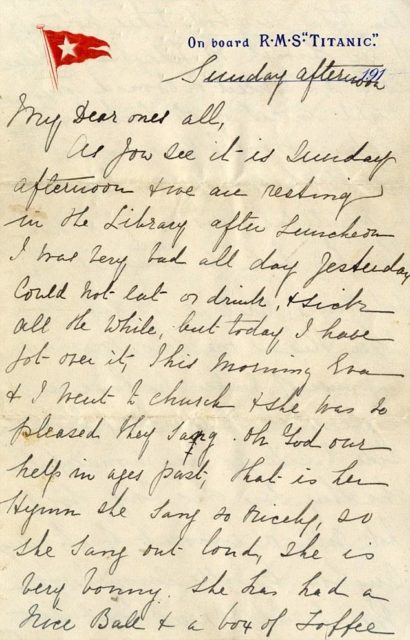 On board R·M·S·"TITANIC".
191
Sunday afternoon
My Dear ones all,
As you see it is Sunday
afternoon & we are resting
in the Library after Luncheon
I was very bad all day yesterday
could not eat or drink, & sick
all the while, but today I have
got over it, This morning Eva
& I went to church & she was so
pleased they sang. Oh God our
help in ages past, that is her
Hymn she sang so nicely, so
she sang out loud, she is
very bonny. she has had a
nice Ball & a box of Toffee